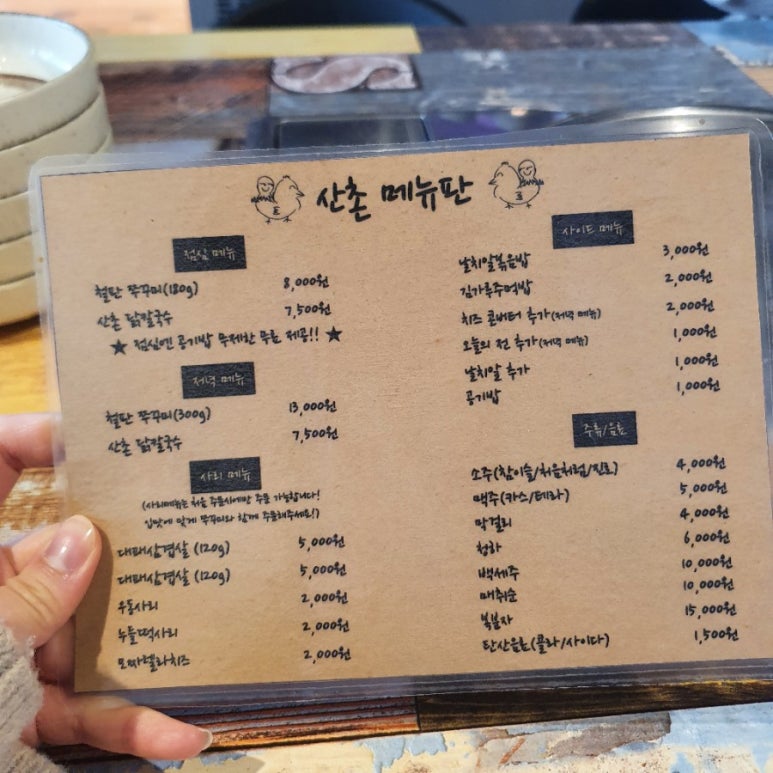 산촌 메뉴판
점심 메뉴
철판 쭈꾸미(180g) 8,000원
산촌 닭칼국수 7,500원
★ 점심엔 공기밥 무제한 무료 제공!! ★
저녁 메뉴
철판 쭈꾸미(300g) 13,000원
산촌 닭칼국수 7,500원
사리 메뉴
(사리메뉴는 처음 주문시에만 주문 가능합니다!
입맛에 맞게 쭈꾸미와 함께 주문해주세요!)
대패삼겹살 (120g) 5,000원
대패삼겹살 (120g) 5,000원
우동사리 2,000원
누들떡사리 2,000원
모짜렐라치즈 2,000원
사이드 메뉴
날치알볶음밥 3,000원
김가루주먹밥 2,000원
치즈 콘버터 추가(저녁 메뉴) 2,000원
오늘의 전 추가(저녁 메뉴) 1,000원
날치알 추가 1,000원
공기밥 1,000원
주류/음료
소주(참이슬/처음처럼/진로) 4,000원
맥주(카스/테라) 5,000원
막걸리 4,000원
청하 6,000원
백세주 10,000원
매취순 10,000원
복분자 15,000원
탄산음료(콜라/사이다) 1,500원